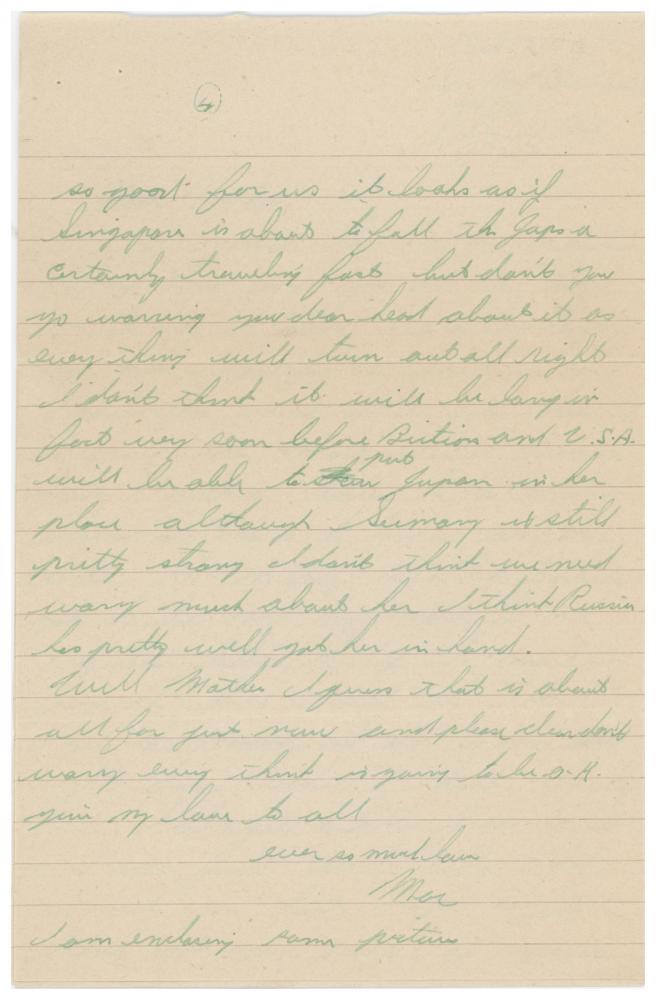 4
so good for us it looks as if
Singapore is about to fall the Japs a
certainly traveling fast but don't you
go warring your dear head about it as
every thing will turn out all right
I don't think it will be long in
fact very soon before Brition and U.S.A.
will be able to put Japan in her
place although Germany is still
pretty strong I don't think we need
wary much about her I think Russia
has pretty well got her in hand.
Well Mother I guess that is about
all for just now and please dear don't
wary every think is going to be O.K.
give my love to all
ever so much love
Mac
I am enclosing some picture